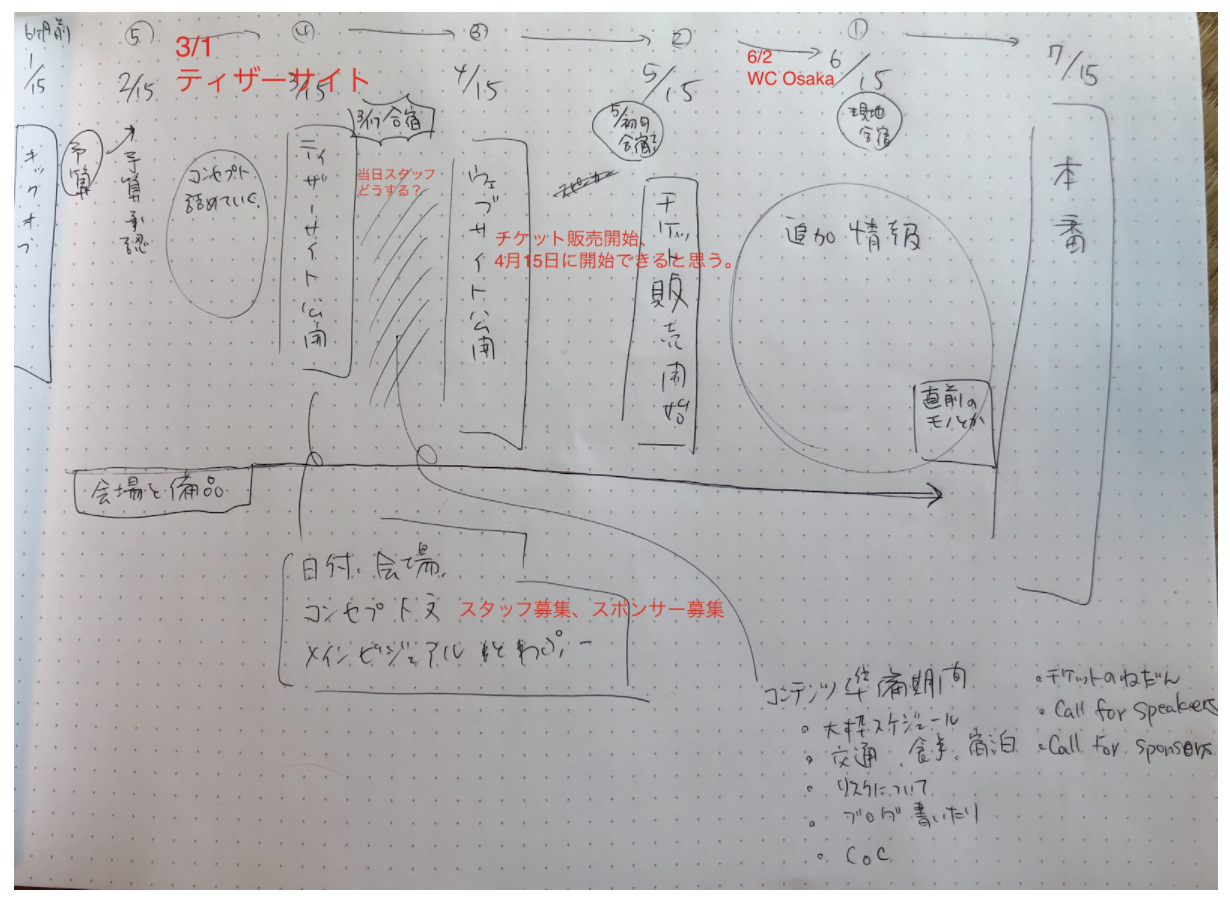 6ヶ月前
⑤
④
③
②
①
3/1
ティザーサイト
6/2
WC Osaka
1/15
2/15
3/15
4/15
5/15
6/15
7/15
キックオフ
予算
予算承認
コンセプト
詰めていく
ティザーサイト公開
合宿
当日スタッフ
どうする?
ウェブサイト公開
チケット販売開始、
4月15日に開始できると思う。
5/初旬
合宿?
チケット販売開始
現地
合宿
追加情報
直前の
モノとか
本番
会場と備品
日付、会場、
コンセプト文
スタッフ募集、スポンサー募集
メインビジュアル
コンテンツ準備期間
・大枠スケジュール
・交通、食事、宿泊
・リスクについて
・ブログ書いたり
・CoC
・チケットのねだん
・Call for speakers
・Call for sponsors